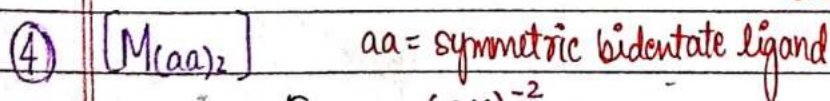 ④ [M(aa)₂] aa = symmetric bidentate ligand
-2